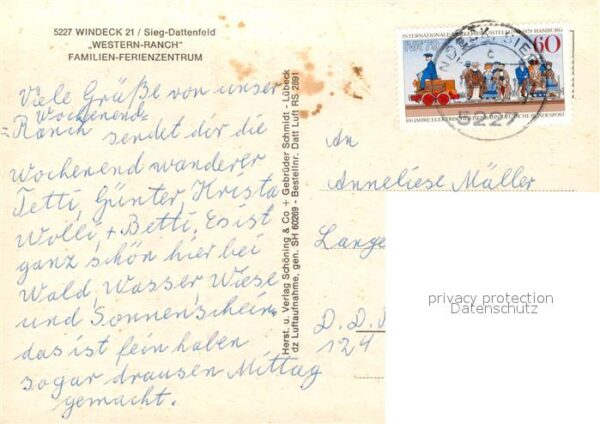 5227 WINDECK 21 / Sieg-Dattenfeld
„WESTERN-RANCH"
FAMILIEN-FERIENZENTRUM
Viele Grüße von unser
Wochenend
= Ranch sendet dir die
Wochenend wanderer
Tetti, Günter, Krista
Wolli, + Betti, Es ist
ganz schön hier bei
Wald, Wasser Wiese
und Sonnenschein,
das ist fein haben
sogar drausen Mittag
gemacht.
Herst. u. Verlag Schöning & Co + Gebrüder Schmidt - Lübeck
dz Luftaufnahme, gen. SH 60269 - Bestellnr. Datt Luft RS 2691
INTERNATIONALE VERKEHRSAUSSTELLUNG 1979 HAMBURG
IVA '79
60
DEUTSCHE BUNDESPOST
An
Anneliese Müller
Lange
D. D.
124
privacy protection
Datenschutz